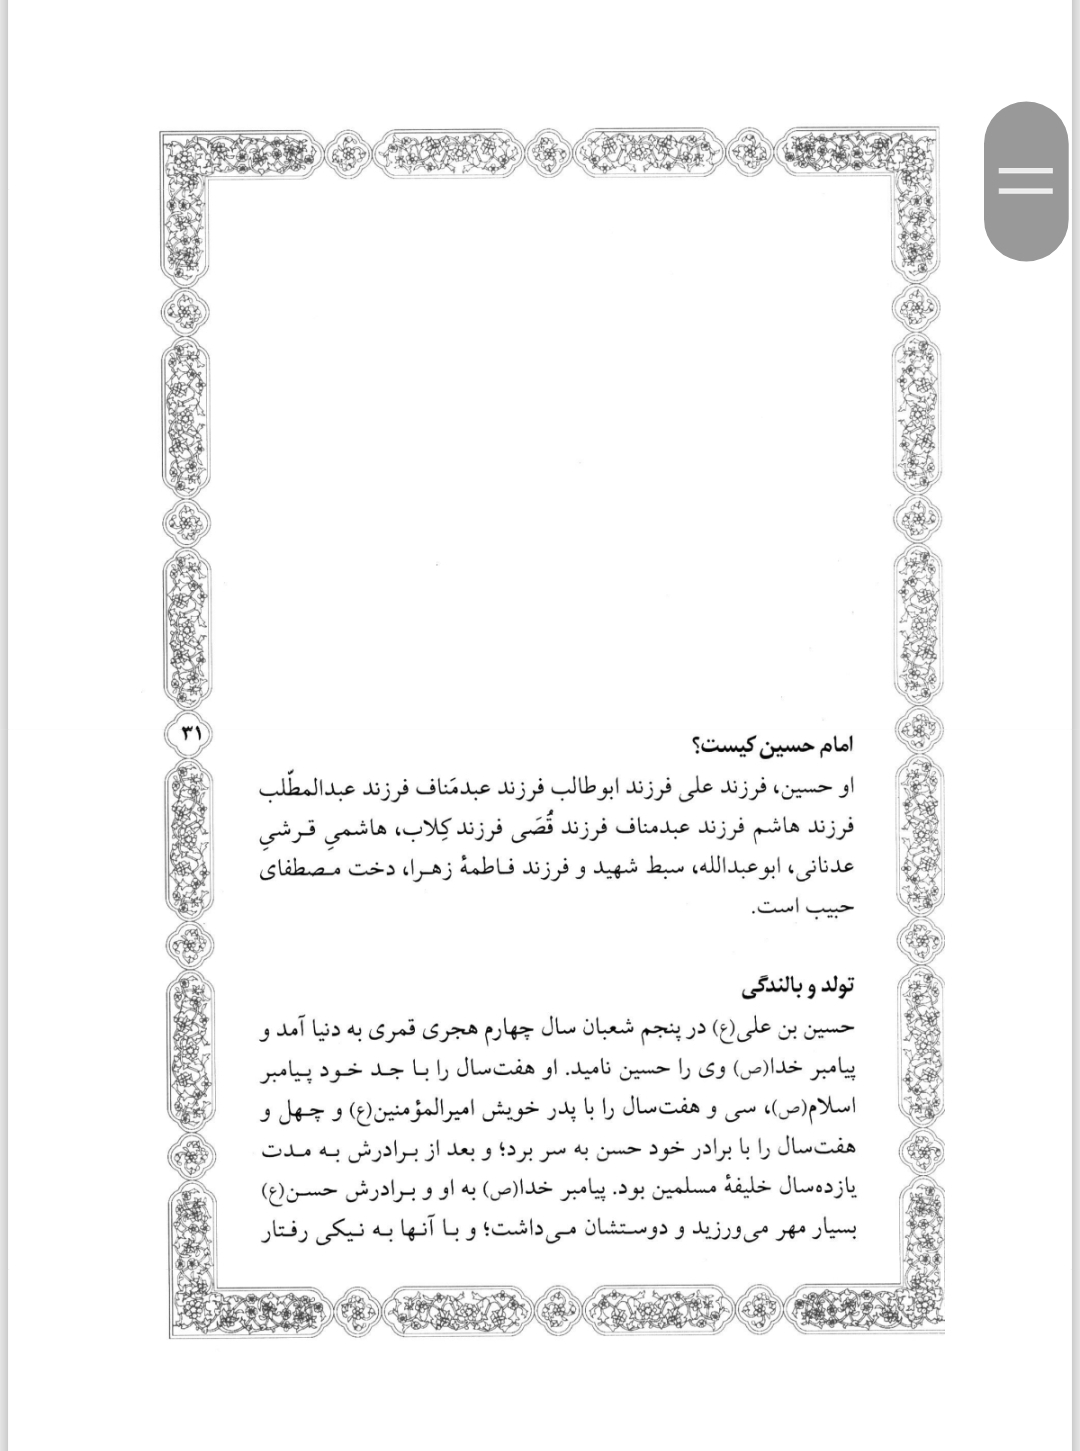 ۳۱
امام حسین کیست؟
او حسین، فرزند علی فرزند ابوطالب فرزند عبدمَناف فرزند عبدالمطّلب
فرزند هاشم فرزند عبدمناف فرزند قُصَی فرزند کِلاب، هاشمیِ قـرشیِ
عدنانی، ابوعبدالله، سبط شهید و فرزند فـاطمهٔ زهـرا، دخت مـصطفای
حبیب است.
تولد و بالندگی
حسین بن علی(ع) در پنجم شعبان سال چهارم هجری قمری به دنیا آمد و
پیامبر خدا(ص) وی را حسین نامید. او هفت‌سال را بـا جـد خـود پـیامبر
اسلام(ص)، سی و هفت‌سال را با پدر خویش امیرالمؤمنین(ع) و چـهل و
هفت‌سال را با برادر خود حسن به سر برد؛ و بعد از بـرادرش بـه مـدت
یازده‌سال خلیفهٔ مسلمین بود. پیامبر خدا(ص) به او و بـرادرش حسـن(ع)
بسیار مهر می‌ورزید و دوسـتشان مـی‌داشت؛ و بـا آنـها بـه نـیکی رفـتار